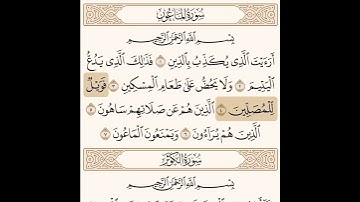 سُورَةُ المَاعُونِ
بِسْمِ اللَّهِ الرَّحْمَٰنِ الرَّحِيمِ
أَرَءَيْتَ الَّذِي يُكَذِّبُ بِالدِّينِ ١ فَذَٰلِكَ الَّذِي يَدُعُّ
الْيَتِيمَ ٢ وَلَا يَحُضُّ عَلَىٰ طَعَامِ الْمِسْكِينِ ٣ فَوَيْلٌ
لِّلْمُصَلِّينَ ٤ الَّذِينَ هُمْ عَن صَلَاتِهِمْ سَاهُونَ ٥
الَّذِينَ هُمْ يُرَاءُونَ ٦ وَيَمْنَعُونَ الْمَاعُونَ ٧
سُورَةُ الكَوْثَرِ
بِسْمِ اللَّهِ الرَّحْمَٰنِ الرَّحِيمِ